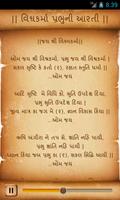 8:39
|| વિશ્વકર્મા પ્રભુની આરતી ||
||જય શ્રી વિશ્વકર્મા||
ઓમ જય શ્રી વિશ્વકર્મા, પ્રભુ જય શ્રી વિશ્વકર્મા
સકલ સૃષ્ટિ કે કર્તા (૨). રક્ષક સ્તુતિ ધર્મા.
ઓમ જય
આદિ સૃષ્ટિ મે વિધિ કો, શ્રુતિ ઉપદેશ દિયા.
પ્રભુ શ્રુતિ ઉપદેશ દિયા.
જીવ માત્રકા જગમે (૨) જ્ઞાન વિકાસ કિયા.
ઓમ જય
ઋષિ અંગીરા ને તપસે, શાંતિ નહિ પાયી,
પ્રભુ શાંતિ નહિ પાયી.
ધ્યાન કિયા જબ પ્રભુકા (૨) સકલ સિદ્ધિ આયી.
ઓમ જય